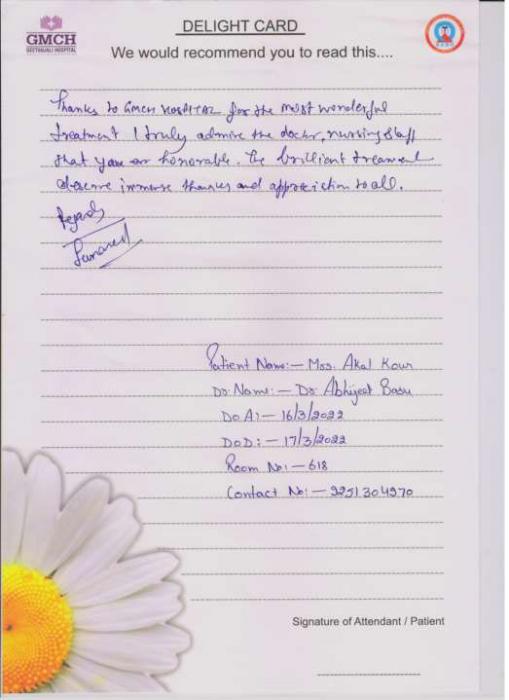 GMCH
GEETANJALI HOSPITAL
DELIGHT CARD
We would recommend you to read this....
Thanks to GMCH HOSPITAL for the most wonderful
treatment I truly admire the doctor, nursing staff
that you are honorable. The brillient treament
deserve immense thanks and appreciction to all.
Regards
Patient Name:- Mrs. Akal Kour
Dr. Name:- Dr Abhijeet Basu
DoA:- 16/3/2022
DoD:- 17/3/2022
Room No:- 618
Contact No:- 9251304970
Signature of Attendant / Patient